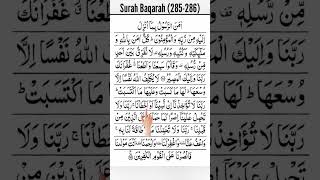 Surah Baqarah (285-286)
اٰمَنَ الرَّسُوْلُ بِمَاۤ اُنْزِلَ
اِلَيْهِ مِنْ رَّبِّهٖ وَالْمُؤْمِنُوْنَ ؕ كُلٌّ اٰمَنَ بِاللّٰهِ وَ
مَلٰٓئِكَتِهٖ وَكُتُبِهٖ وَرُسُلِهٖ ۟ لَا نُفَرِّقُ بَيْنَ اَحَدٍ
مِّنْ رُّسُلِهٖ ۟ وَقَالُوْا سَمِعْنَا وَاَطَعْنَا ۫ غُفْرَانَكَ
رَبَّنَا وَاِلَيْكَ الْمَصِيْرُ لَا يُكَلِّفُ اللّٰهُ نَفْسًا اِلَّا
وُسْعَهَا ؕ لَهَا مَا كَسَبَتْ وَعَلَيْهَا مَا اكْتَسَبَتْ ؕ
رَبَّنَا لَا تُؤَاخِذْنَاۤ اِنْ نَّسِيْنَاۤ اَوْ اَخْطَاْنَا ۚ رَبَّنَا وَلَا
تَحْمِلْ عَلَيْنَاۤ اِصْرًا كَمَا حَمَلْتَهٗ عَلَى الَّذِيْنَ مِنْ
قَبْلِنَا ۚ رَبَّنَا وَلَا تُحَمِّلْنَا مَا لَا طَاقَةَ لَنَا بِهٖ ۚ
وَاعْفُ عَنَّا وَاغْفِرْ لَنَا وَارْحَمْنَا اَنْتَ مَوْلٰىنَا
فَانْصُرْنَا عَلَى الْقَوْمِ الْكٰفِرِيْنَ